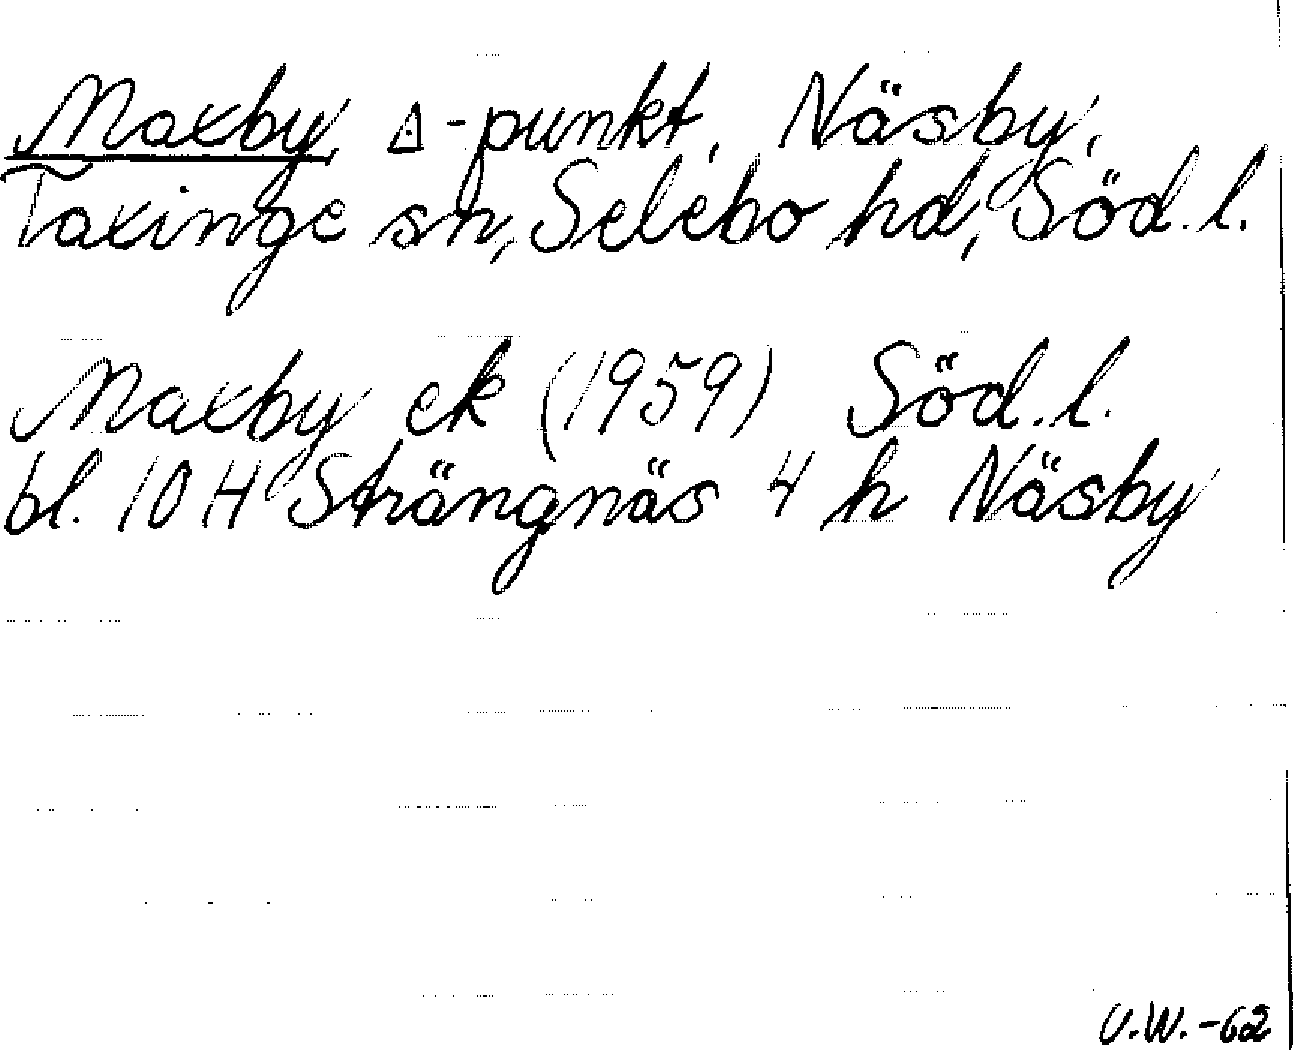 Maxby, △-punkt, Näsby,
Taxinge sn, Selebo hd, Söd. l.
Maxby ek (1959) Söd. l.
bl. 10 H Strängnäs 4 h Näsby
U.W. -62